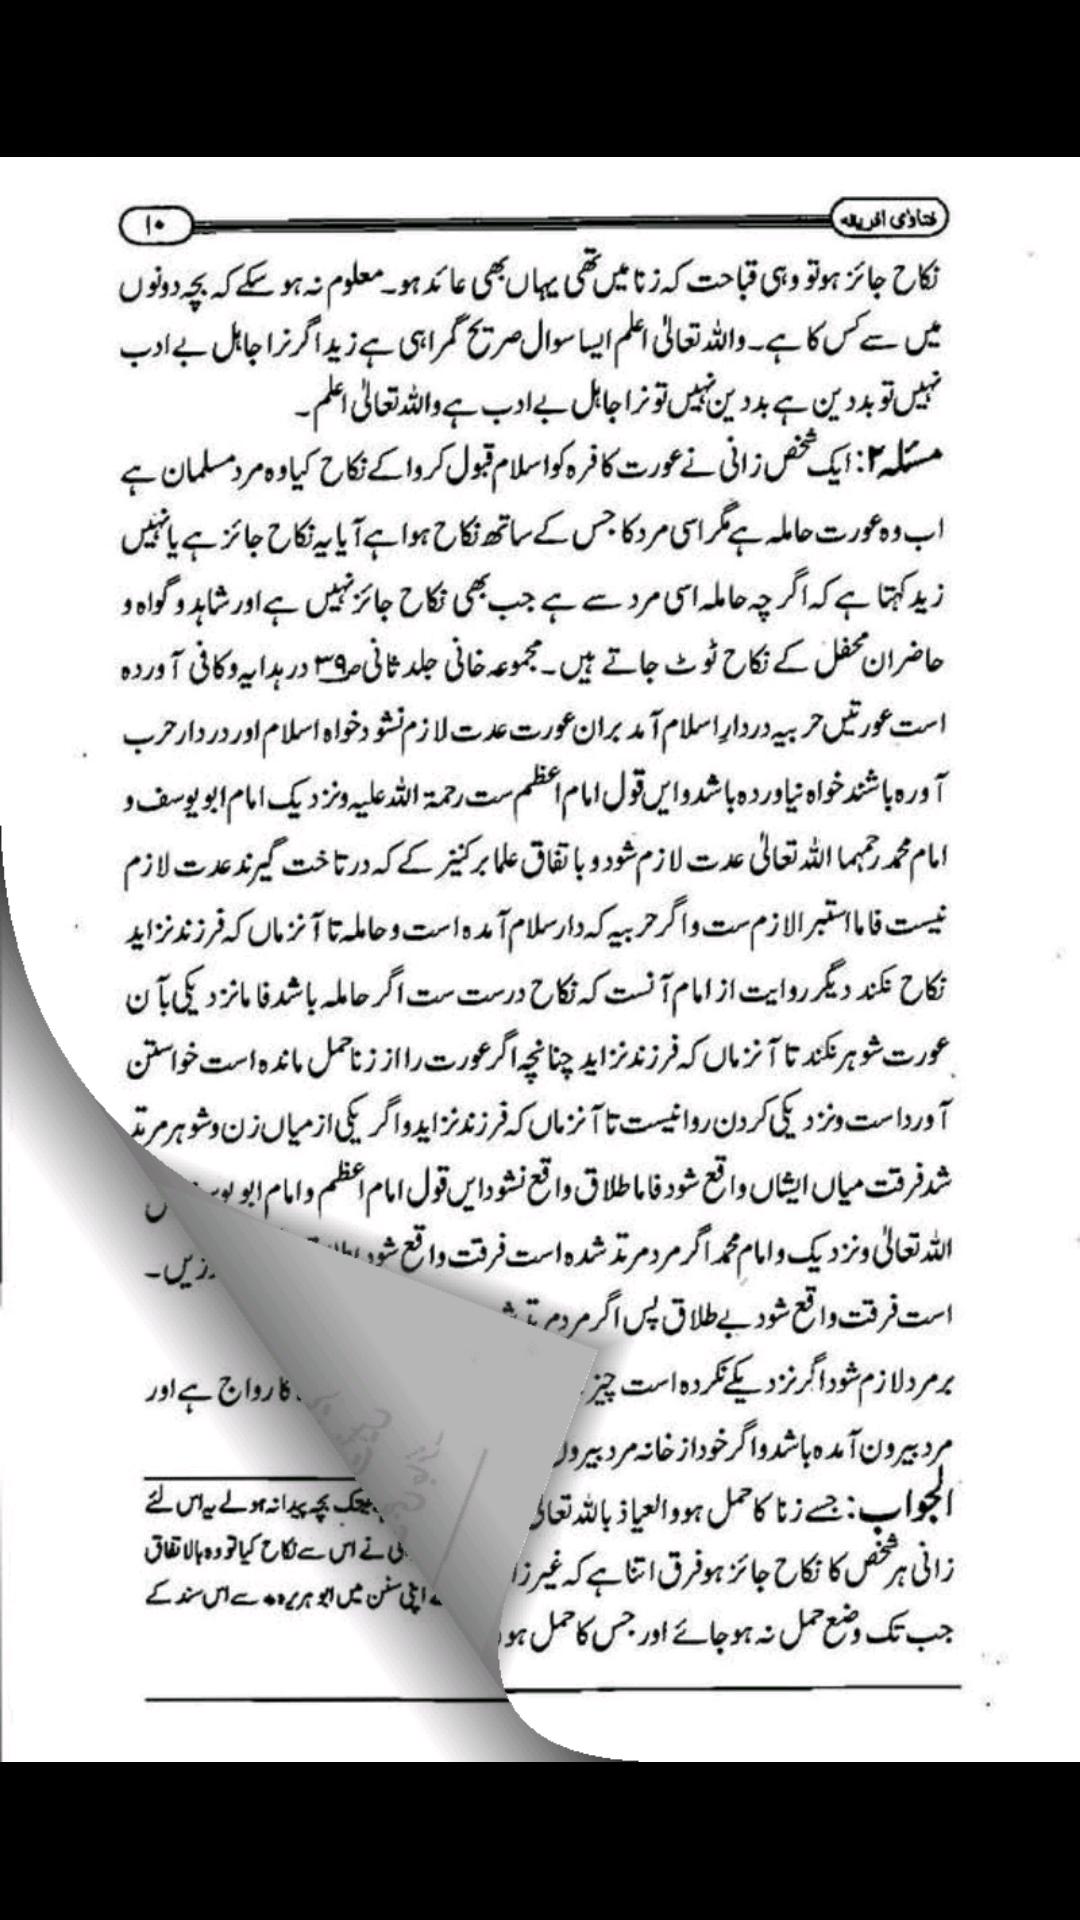 فتاوٰی افریقہ
۱۰
نکاح جائز ہو تو وہی قباحت کہ زنا میں تھی یہاں بھی عائد ہو۔ معلوم نہ ہو سکے کہ بچہ دونوں
میں سے کس کا ہے۔ واللہ تعالیٰ اعلم ایسا سوال صریح گمراہی ہے زید اگر نرا جاہل بے ادب
نہیں تو بددین ہے بددین نہیں تو نرا جاہل بے ادب ہے واللہ تعالیٰ اعلم۔
مسئلہ ۲: ایک شخص زانی نے عورت کافرہ کو اسلام قبول کروا کے نکاح کیا وہ مرد مسلمان ہے
اب وہ عورت حاملہ ہے مگر اسی مرد کا جس کے ساتھ نکاح ہوا ہے آیا یہ نکاح جائز ہے یا نہیں
زید کہتا ہے کہ اگرچہ حاملہ اسی مرد سے ہے جب بھی نکاح جائز نہیں ہے اور شاہد و گواہ و
حاضران محفل کے نکاح ٹوٹ جاتے ہیں۔ مجموعہ خانی جلد ثانی ص۳۹ در ہدایہ و کافی آوردہ
است عورتیں حربیہ در دارِ اسلام آمد بران عورت عدت لازم نشود خواہ اسلام اور در دار حرب
آورہ باشند خواہ نیاوردہ باشد وایں قول امام اعظم ست رحمۃ اللہ علیہ ونزدیک امام ابو یوسف و
امام محمد رحمہما اللہ تعالیٰ عدت لازم شود و باتفاق علما بر کنیز کے کہ در تاخت گیرند عدت لازم
نیست فاما استبرا لازم ست واگر حربیہ کہ دار سلام آمدہ است و حاملہ تا آنزماں کہ فرزند نزاید
نکاح نکند دیگر روایت از امام آنست کہ نکاح درست ست اگر حاملہ باشد فاما نزدیکی بآن
عورت شوہر نکند تا آنزماں کہ فرزند نزاید چنانچہ اگر عورت را از زنا حمل ماندہ است خواستن
آورد است ونزدیکی کردن روا نیست تا آنزماں کہ فرزند نزاید واگر یکی از میاں زن وشوہر مرتد
شد فرقت میاں ایشاں واقع شود فاما طلاق واقع نشود ایں قول امام اعظم وامام ابو یوسف
اللہ تعالیٰ ونزدیک وامام محمد اگر مرد مرتد شدہ است فرقت واقع شود
است فرقت واقع شود بے طلاق پس اگر مرد مرتد
بر مرد لازم شود اگر نزدیکے نکردہ است چیز
کا رواج ہے اور
مرد بیرون آمدہ باشد واگر خود از خانہ مرد بیرون
الجواب: جسے زنا کا حمل ہو والعیاذ باللہ تعالیٰ
زانی ہر شخص کا نکاح جائز ہو فرق اتنا ہے کہ غیر
جب تک وضع حمل نہ ہو جائے اور جس کا حمل ہو
بچہ پیدا نہ ہولے یہ اس لئے
نے اس سے نکاح کیا تو وہ بالاتفاق
اپنی سنن میں ابو ہریرہ سے اس سند کے